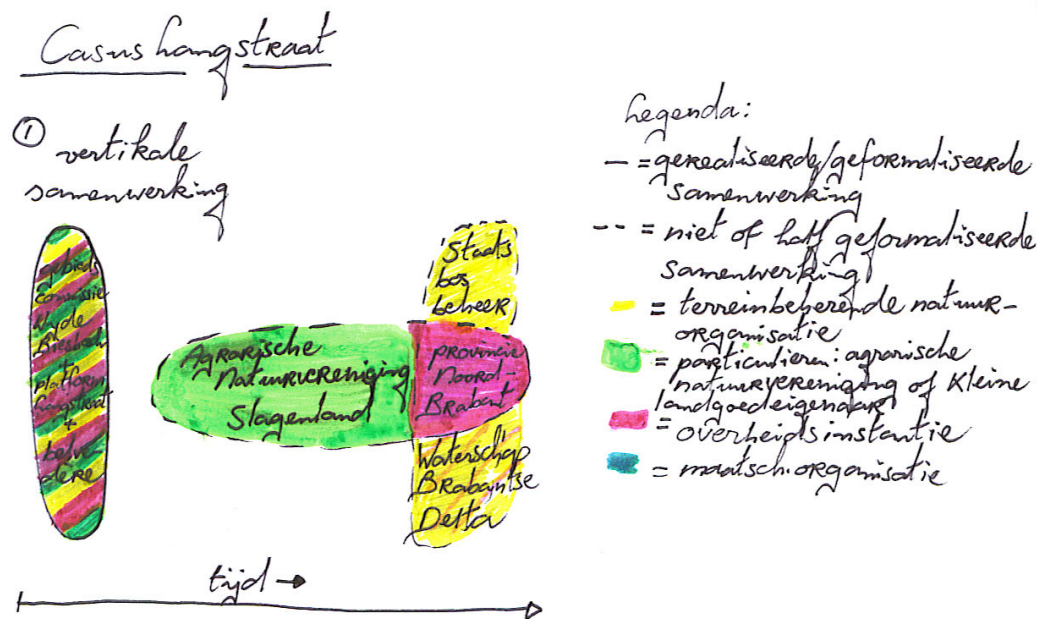 Casus Langstraat
① vertikale
samenwerking
gebieds
commissie
Wyde
Biesbosch
platform
Langstraat
+
belve-
dère
Agrarische
Natuurvereniging
Slagenland
Staats
bos
beheer
provincie
Noord-
Brabant
Waterschap
Brabantse
Delta
tijd →
Legenda:
— = gerealiseerde/geformaliseerde
samenwerking
-- = niet of half geformaliseerde
samenwerking
= terreinbeherende natuur-
organisatie
= particulieren: agrarische
natuurvereniging of Kleine
landgoedeigenaar
= overheidsinstantie
= maatsch. organisatie